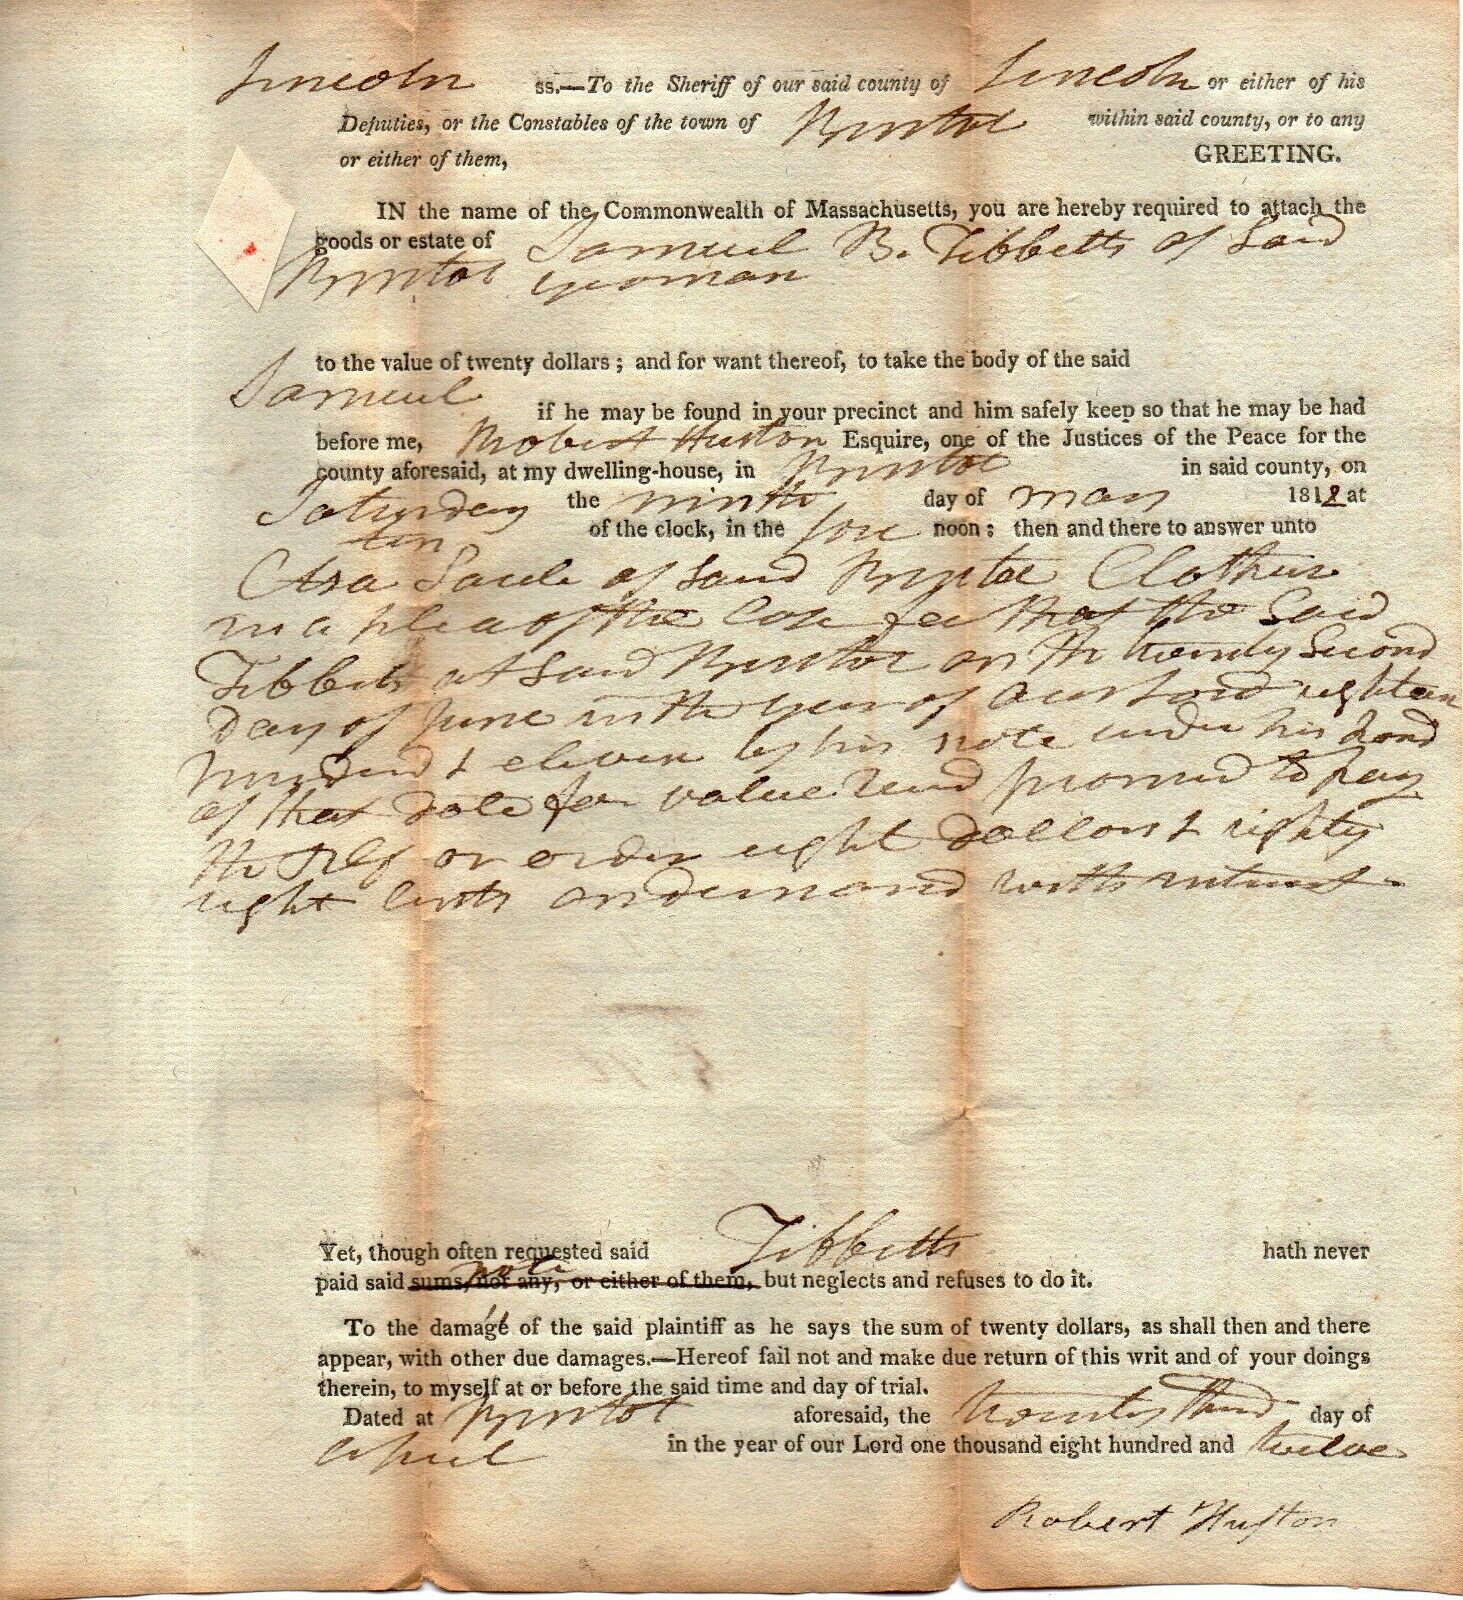 Lincoln ss.—To the Sheriff of our said county of Lincoln or either of his
Deputies, or the Constables of the town of Bristol within said county, or to any
or either of them, GREETING.
IN the name of the Commonwealth of Massachusetts, you are hereby required to attach the
goods or estate of Samuel B. Tibbetts of Said
Bristol yeoman
to the value of twenty dollars ; and for want thereof, to take the body of the said
Samuel if he may be found in your precinct and him safely keep so that he may be had
before me, Robert Huston Esquire, one of the Justices of the Peace for the
county aforesaid, at my dwelling-house, in Bristol in said county, on
Saturday the ninth day of may 1812 at
ten of the clock, in the fore noon : then and there to answer unto
Asa Soule of said Bristol Clothier
in a plea of the Case for that the Said
Tibbetts at said Bristol on the twenty Second
Day of June in the year of our Lord eighteen
hundred & eleven by his note under his hand
of that date for value recd promised to pay
the Plf or order eight dollars & eighty
eight Cents on demand with interest
Yet, though often requested said Tibbetts hath never
note
paid said sums, nor any, or either of them, but neglects and refuses to do it.
To the damage of the said plaintiff as he says the sum of twenty dollars, as shall then and there
appear, with other due damages.—Hereof fail not and make due return of this writ and of your doings
therein, to myself at or before the said time and day of trial.
Dated at Bristol aforesaid, the twenty third day of
April in the year of our Lord one thousand eight hundred and twelve
Robert Huston